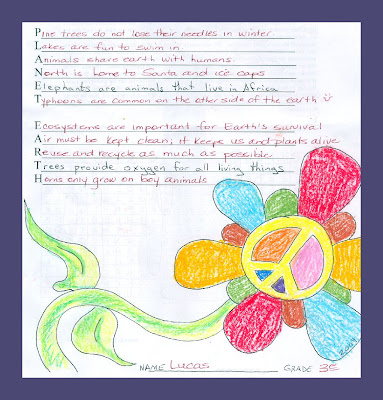 Pine trees do not lose their needles in winter.
Lakes are fun to swim in.
Animals share earth with humans.
North is home to Santa and ice caps
Elephants are animals that live in Africa
Typhoons are common on the other side of the earth
Ecosystems are important for Earth's survival
Air must be kept clean; it keeps us and plants alive
Reuse and recycle as much as possible.
Trees provide oxygen for all living things
Horns only grow on boy animals
NAME Lucas GRADE 3E